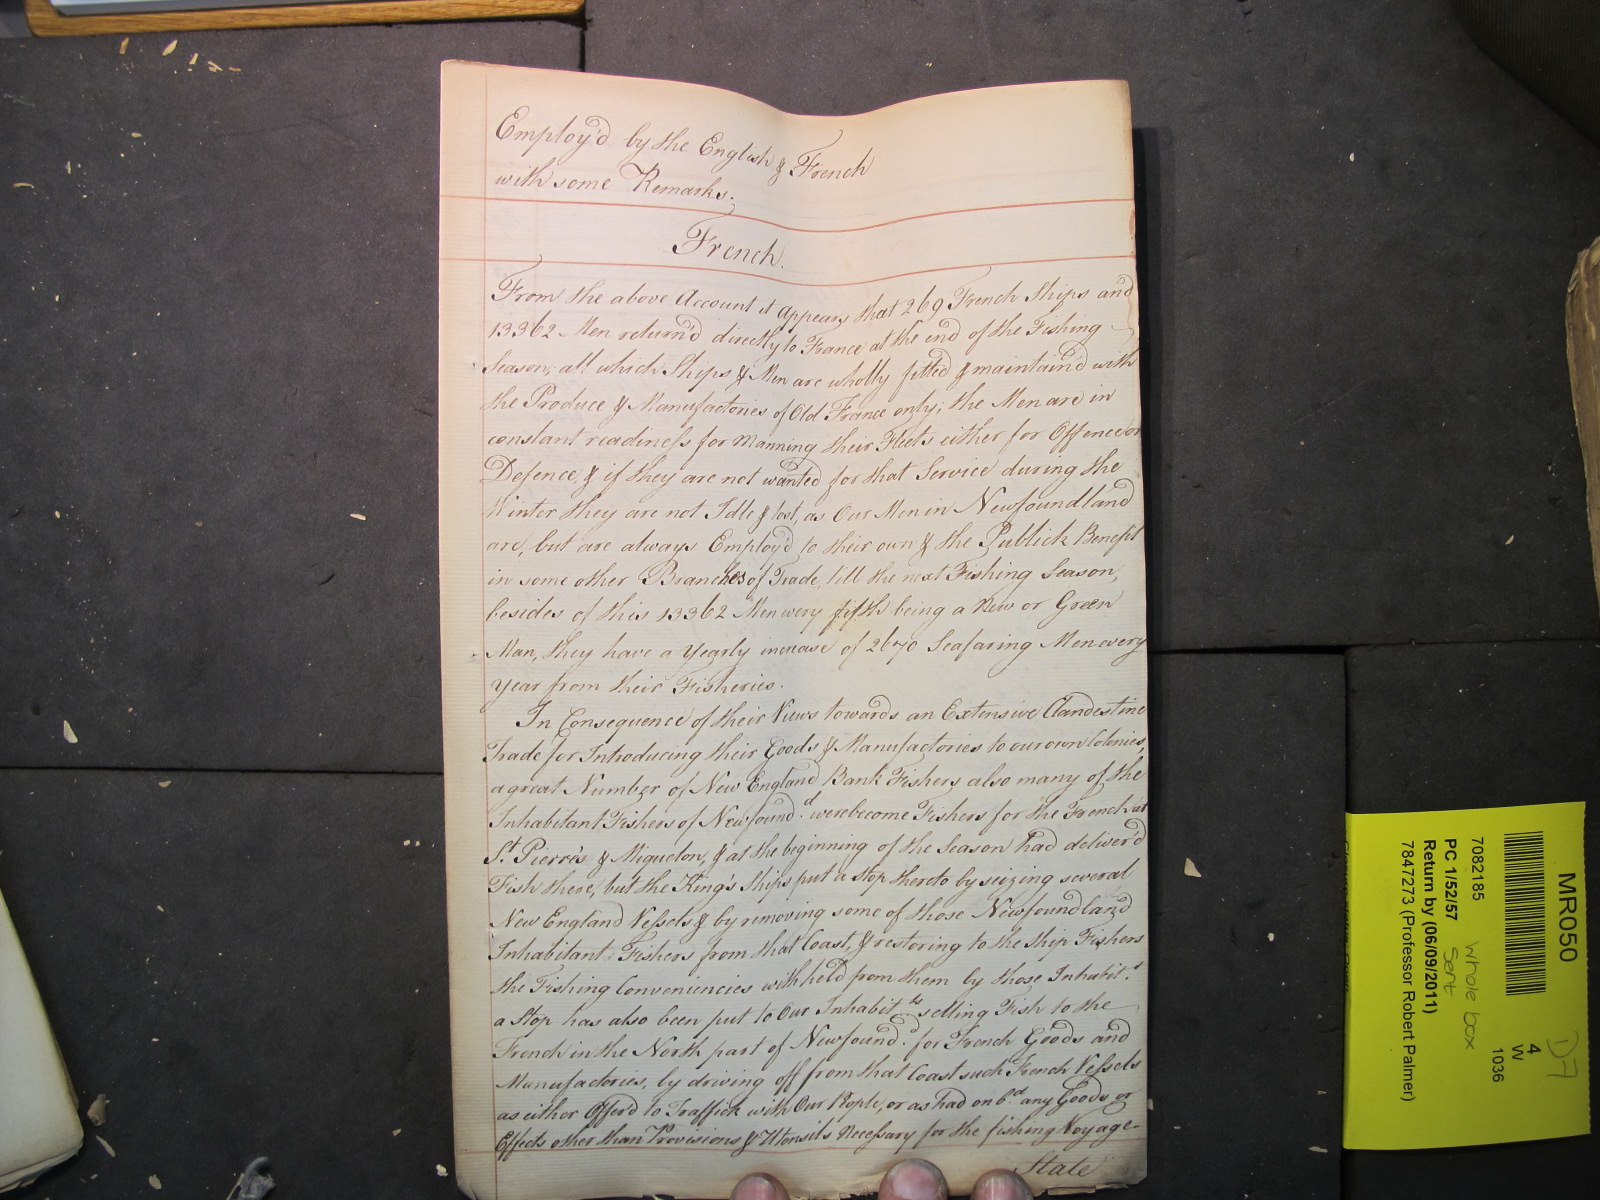 Employ'd by the English & French
with some Remarks.
French.
From the above Account it appears that 269 French Ships and
13362 Men return'd directly to France at the end of the Fishing
Season; all which Ships & Men are wholly fitted & maintain'd with
the Produce & Manufactories of Old France only; the Men are in
constant readiness for Manning their Fleets either for Offence or
Defence, & if they are not wanted for that Service during the
Winter they are not Idle & lost, as Our Men in Newfoundland
are, but are always Employ'd to their own & the Publick Benefit
in some other Branches of Trade, till the next Fishing Season,
besides of this 13362 Men every fifth being a New or Green
Man, they have a Yearly increase of 2670 Seafaring Men every
Year from their Fisheries.
In Consequence of their Views towards an Extensive Clandestine
Trade for Introducing their Goods & Manufactories to our own Colonies,
a great Number of New England Bank Fishers also many of the
Inhabitant Fishers of Newfound.d were become Fishers for the French at
St. Pierres & Miquelon, & at the beginning of the Season had deliver'd
Fish there, but the King's Ships put a stop thereto by seizing several
New England Vessels & by removing some of those Newfoundland
Inhabitant Fishers from that Coast, & restoring to the Ship Fishers
the Fishing Conveniencies withheld from them by those Inhabit.ts
a Stop has also been put to Our Inhabit.ts selling Fish to the
French in the North part of Newfound.d for French Goods and
Manufactories, by driving off from that Coast such French Vessels
as either Offer'd to Traffick with Our People, or as had on b.d any Goods or
Effects other than Provisions & Utensils Necessary for the fishing Voyage
State
MR050
7082185
PC 1/52/57
Return by (06/09/2011)
7847273 (Professor Robert Palmer)
4
W
1036
whole box
sent